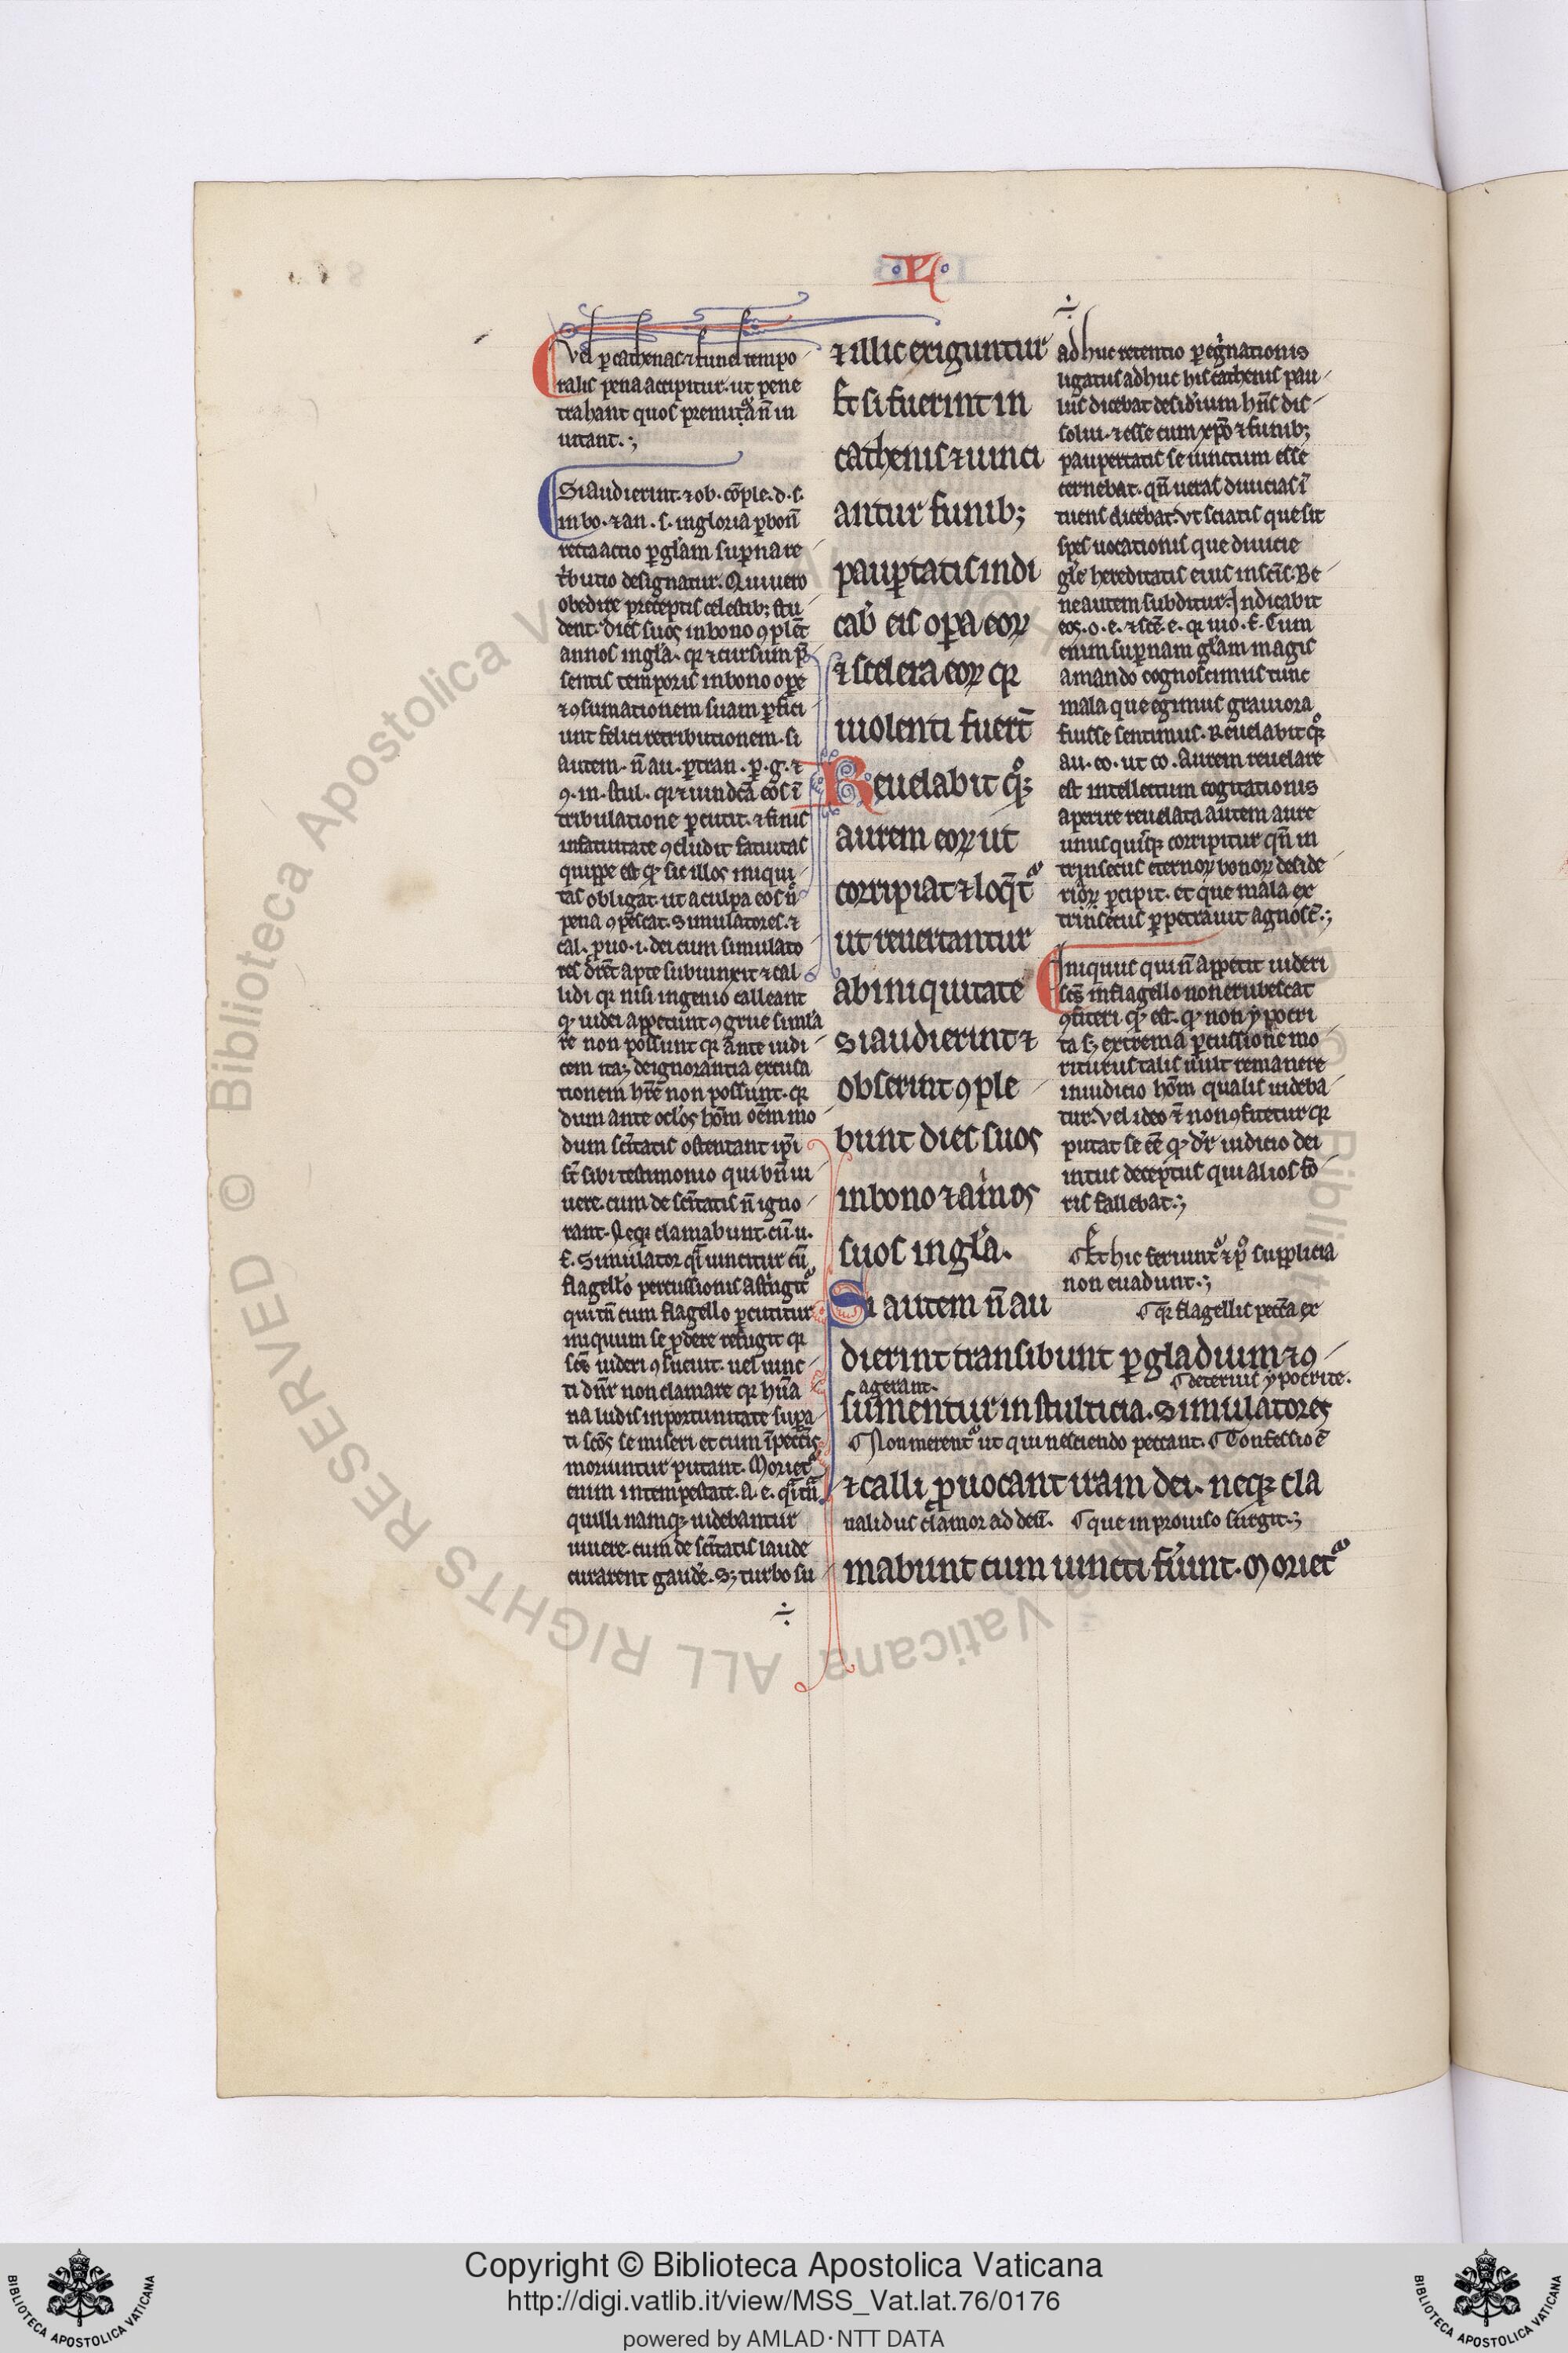 ·L·
Vel ꝑ cathenas ⁊ funes tempo
ralis pena accipitur. ut pene
trahant quos premit᷑ ña in
uitant.
Si audierint. ⁊ ob. cõple. d. s.
in bo. ⁊ an. s. in gloria ꝑ bonũ
recta actio ꝑ gl̃am suꝑna re
tͥbutio designatur. Qui uero
obedire preceptis celestib; stu
dent. dies suos in bono ꝯplẽt
annos in gl̃a. qꝛ ⁊ cursum p̃
sentis temporis in bono oꝑe
⁊ ꝯsumationem suam ꝑfici
unt felici retributionem. si
autem. ñ au. ꝑtran. ꝑ. g. ⁊
ꝯ. in. stul. qꝛ ⁊ uindcã eos ĩ
tribulatione ꝑcutit. ⁊ finis
in fatuitate ꝯcludit fatuitas
quippe est qꝛ sic illos iniqui
tas obligat. ut a culpa eos ñ
pena ꝯpescat. Simulatores. ⁊
cal. ꝓuo. i. dei cum simulato
res dr̃et apte subiunxit ⁊ cal
lidi qꝛ nisi ingenio calleant
qꝛ uideri appetunt ꝯgrue simla
re non possunt qꝛ ante iudi
cem ita; de ignorantia excusa
tionem hr̃e non possunt. qꝛ
dum ante ocl̃os hoĩm oẽm mo
dum sc̃itatis ostentant ip̃i
st̃ sibi testimonio qui bñ ui
uere. cum de sc̃itatis ñ igno
rant. Neqꝫ clamabunt. cũ. u.
f. Simulator qͥ uincitur cũ
flagello percussionis astͥngit᷑
qui tñ cum flagello ꝑcutitur
iniquum se ꝓdere refugit qꝛ
sc̃s uideri ꝯsueuit. uel iunc
ti dñr non clamare qꝛ hũa
na ludis in portunitate suꝑa
ti sc̃os se miseri et cum ĩ pecc̃is
moriuntur putant. Moriet᷑
enim in tempestate. a. e. qͥ tñ
quilli namqꝫ uidebantur
uiuere. cum de sc̃itatis laude
curarent gaudẽ. s; turbo su
⁊ illic eriguntur
Et si fuerint in
cathenis ⁊ uinci
antur funib;
pauꝑtatis indi
cab̾ eis oꝑa eoꝝ
⁊ scelera eoꝝ qꝛ
uiolenti fuer̃t
Reuelabit qͦꝫ
aurem eoꝝ ut
corripiat ⁊ loq̃t᷑
ut reuertantur
ab iniquitate
Si audierint ⁊
obserint ꝯple
bunt dies suos
in bono ⁊ annos
suos in gl̃a.
Si autem ñ au
dierint transibunt ꝑ gladium ⁊ ꝯ
agerant. deterius ypocrite.
sumentur in stulticia. Simulatores
Non merent᷑ ut qui nesciendo peccant. Confessio ẽ
⁊ calli ꝓuocant iram dei. neqꝫ cla
ualidus clamor ad deũ. que in prouiso surgit.
mabunt cum uincti fũint. Moriet᷑
adhuc retentio ꝑegͥnationis
ligatus adhuc his cathenis pau
lus dicebat desid̾ium hñs dis
solui. ⁊ esse cum xp̃o ⁊ funib;
paupertatis se iunctum esse
cernebat. qñ ueras diuicias ĩ
tuens dicebat. Vt sciatis que sit
spes uocationis que diuicie
gl̃e hereditatis eius in sc̃is. Be
ne autem subditur. Indicabit
eos. o. e. ⁊ sce. e. qꝛ uio. f. Cum
enim suꝑnam gl̃am magis
amando cognoscimus tunc
mala que egimus grauiora
fuisse sentimus. Reuelabit qͦꝫ
au. eo. ut co. Aurem reuelare
est intellectum cogitationis
aperire reuelata autem aure
unusquisqꝫ corripitur qñ in
trinsecus eternoꝝ bonoꝝ deside
rioꝝ ꝑcipit. et que mala ex
trinsecus ꝑpetrauit agnosc̃.
Iniquus qui ñ appetit uideri
sc̃s in flagello non erubescat
ꝯfiteri qꝛ est. qꝛ non ypocri
ta s; extrema ꝑcussione mo
riturus talis uult remanere
in iudicio hoĩm qualis uideba
tur. Vel ideo ẽ non ꝯfitetur qꝛ
putat se eẽ qꝛ dr̃ iudicio dei
intus deceptus qui alios fo
ris fallebat.
Et hic feriunt᷑ ⁊ pͦ supplicia
non euadunt.
qꝛ flagellis pecc̃a ex
Copyright © Biblioteca Apostolica Vaticana
http://digi.vatlib.it/view/MSS_Vat.lat.76/0176
powered by AMLAD·NTT DATA
BIBLIOTECA APOSTOLICA VATICANA
BIBLIOTECA APOSTOLICA VATICANA